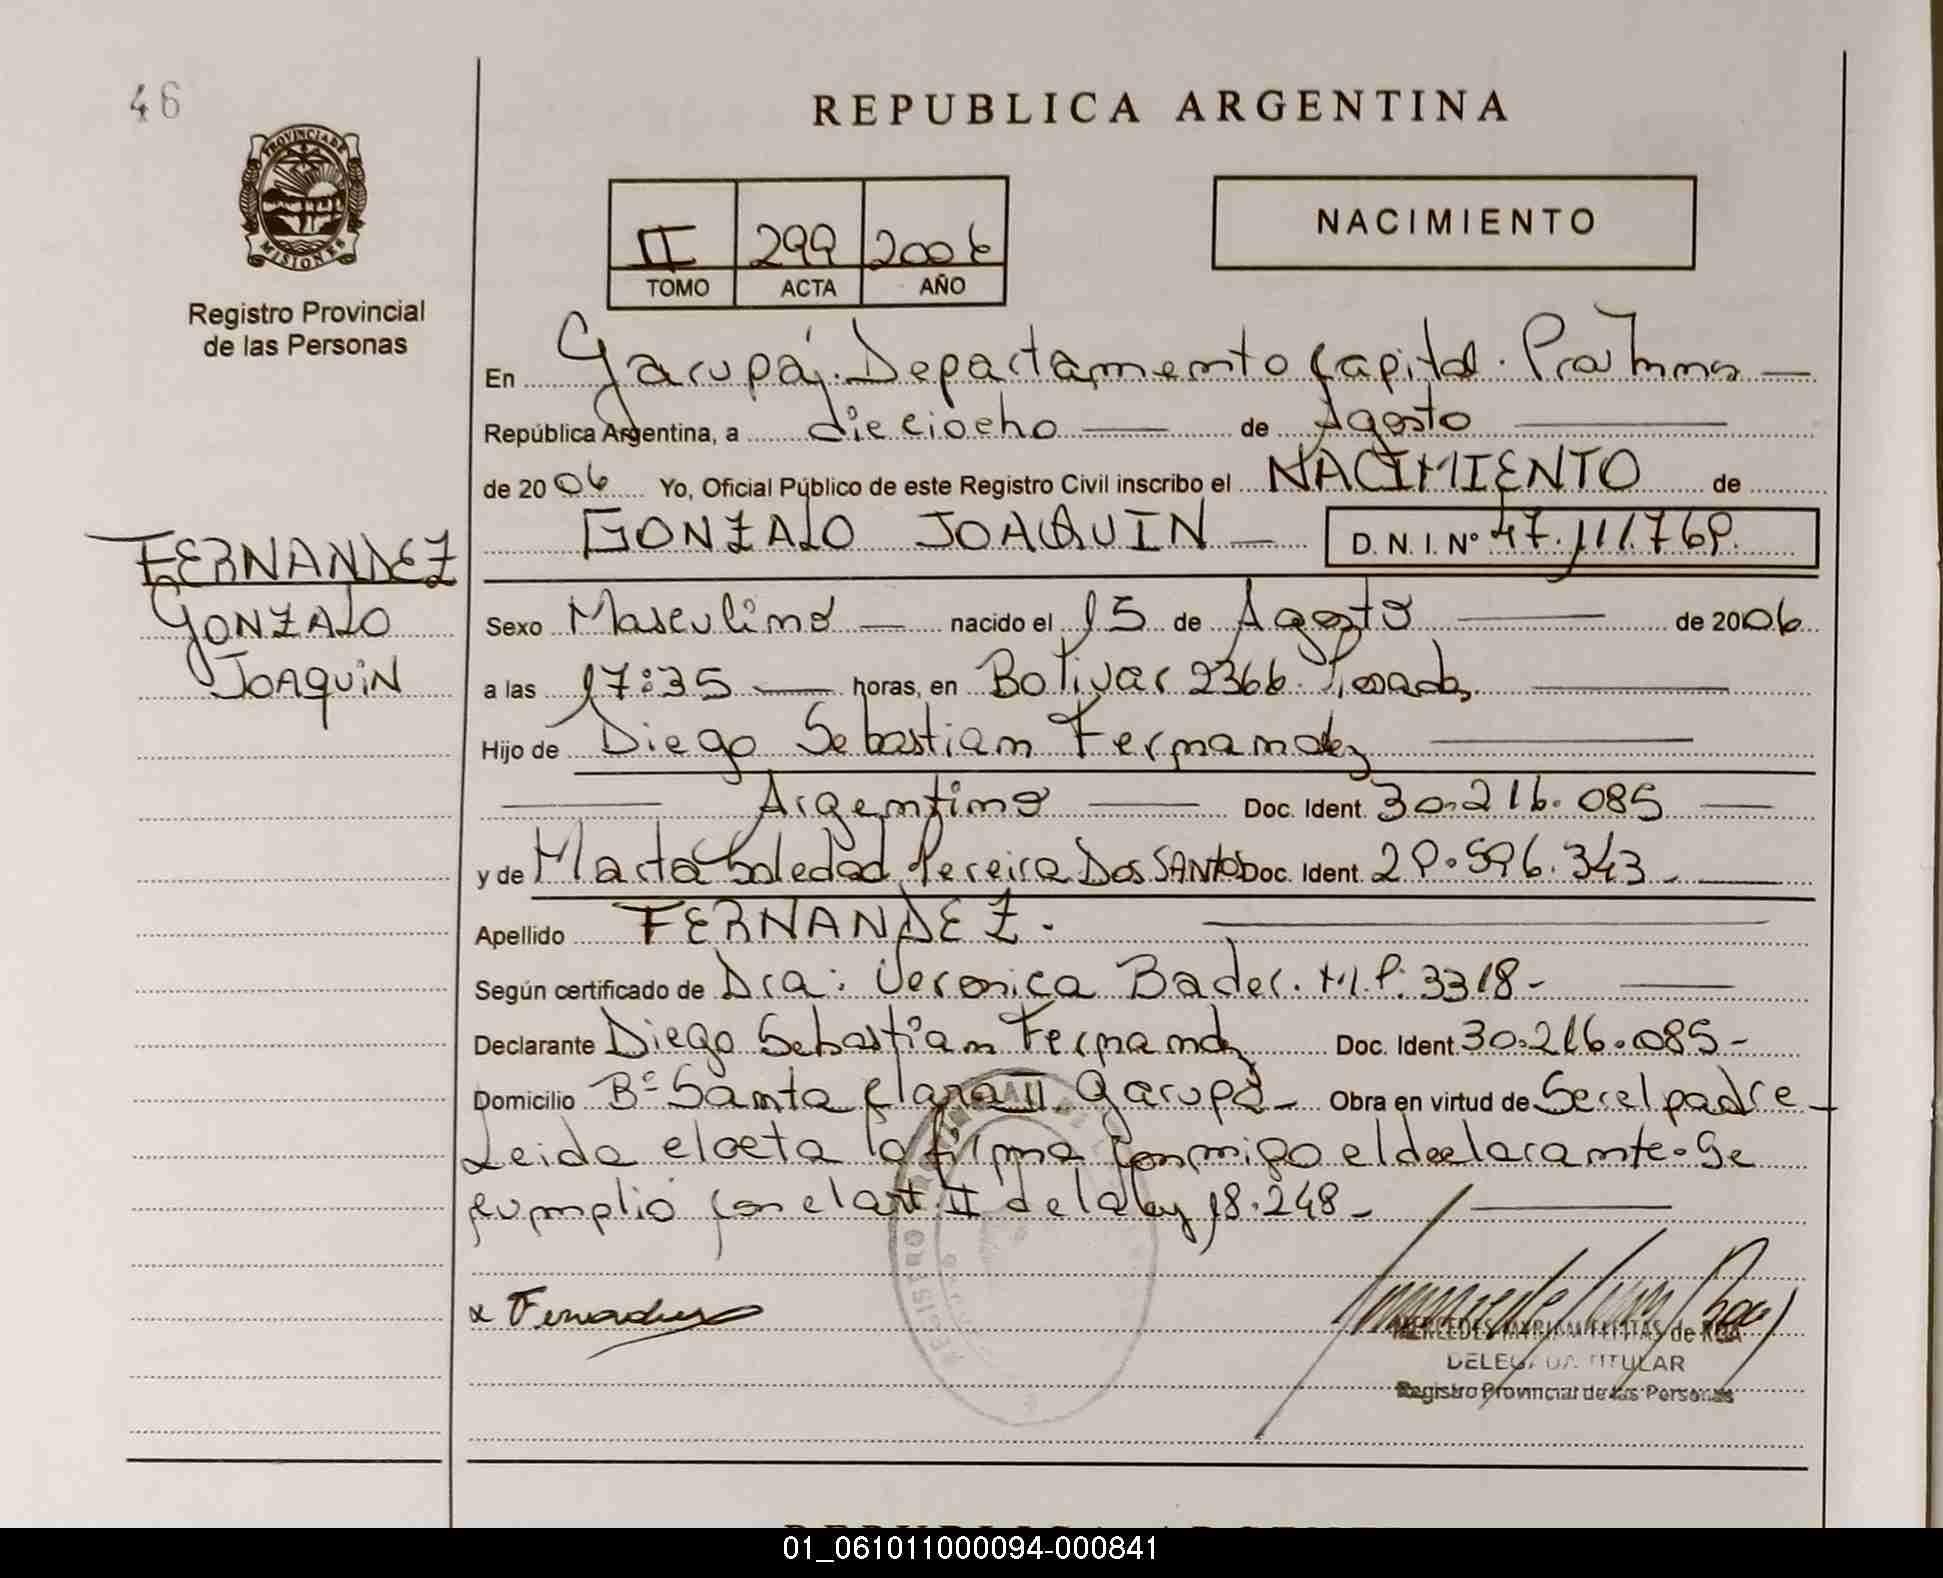 46
REPUBLICA ARGENTINA
PROVINCIA DE
MISIONES
II 299 2006
TOMO ACTA AÑO
NACIMIENTO
Registro Provincial
de las Personas
En Garupá. Departamento Capital. Pcia Mnes
República Argentina, a dieciocho de Agosto
de 2006 Yo, Oficial Público de este Registro Civil inscribo el NACIMIENTO de
GONZALO JOAQUIN D.N.I. Nº 47.111.769.
FERNANDEZ
GONZALO
JOAQUIN
Sexo Masculino nacido el 15 de Agosto de 2006
a las 17:35 horas, en Bolivar 2366. Posadas
Hijo de Diego Sebastian Fernandez
Argentino Doc. Ident. 30.216.085
y de Marta Soledad Pereira Dos SANTOS Doc. Ident. 29.596.343
Apellido FERNANDEZ.
Según certificado de Dra: Veronica Bader. M.P. 3318-
Declarante Diego Sebastian Fernandez Doc. Ident. 30.216.085-
Domicilio Bº Santa Clara II. Garupá Obra en virtud de Ser el padre
Leida el acta la firma conmigo el declarante. Se
cumplió con el art. II de la ley 18.248-
x Fernandez
MERCEDES MYRIAM FLEITAS de ROA
DELEGADA TITULAR
Registro Provincial de las Personas
REPUBLICA ARGENT
01_061011000094-000841